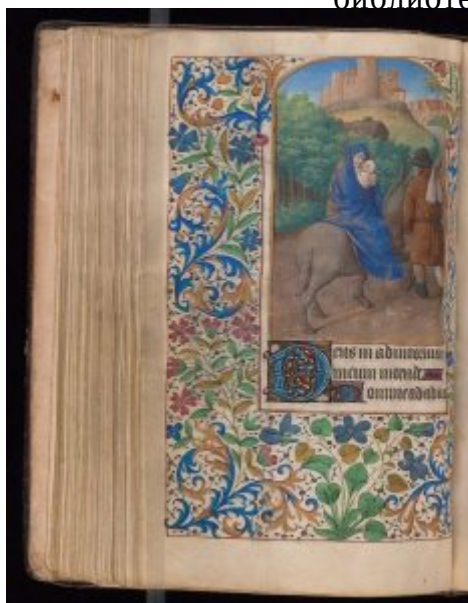 библиоте
Deus in adiutorium
meum intende
Domine ad adiu